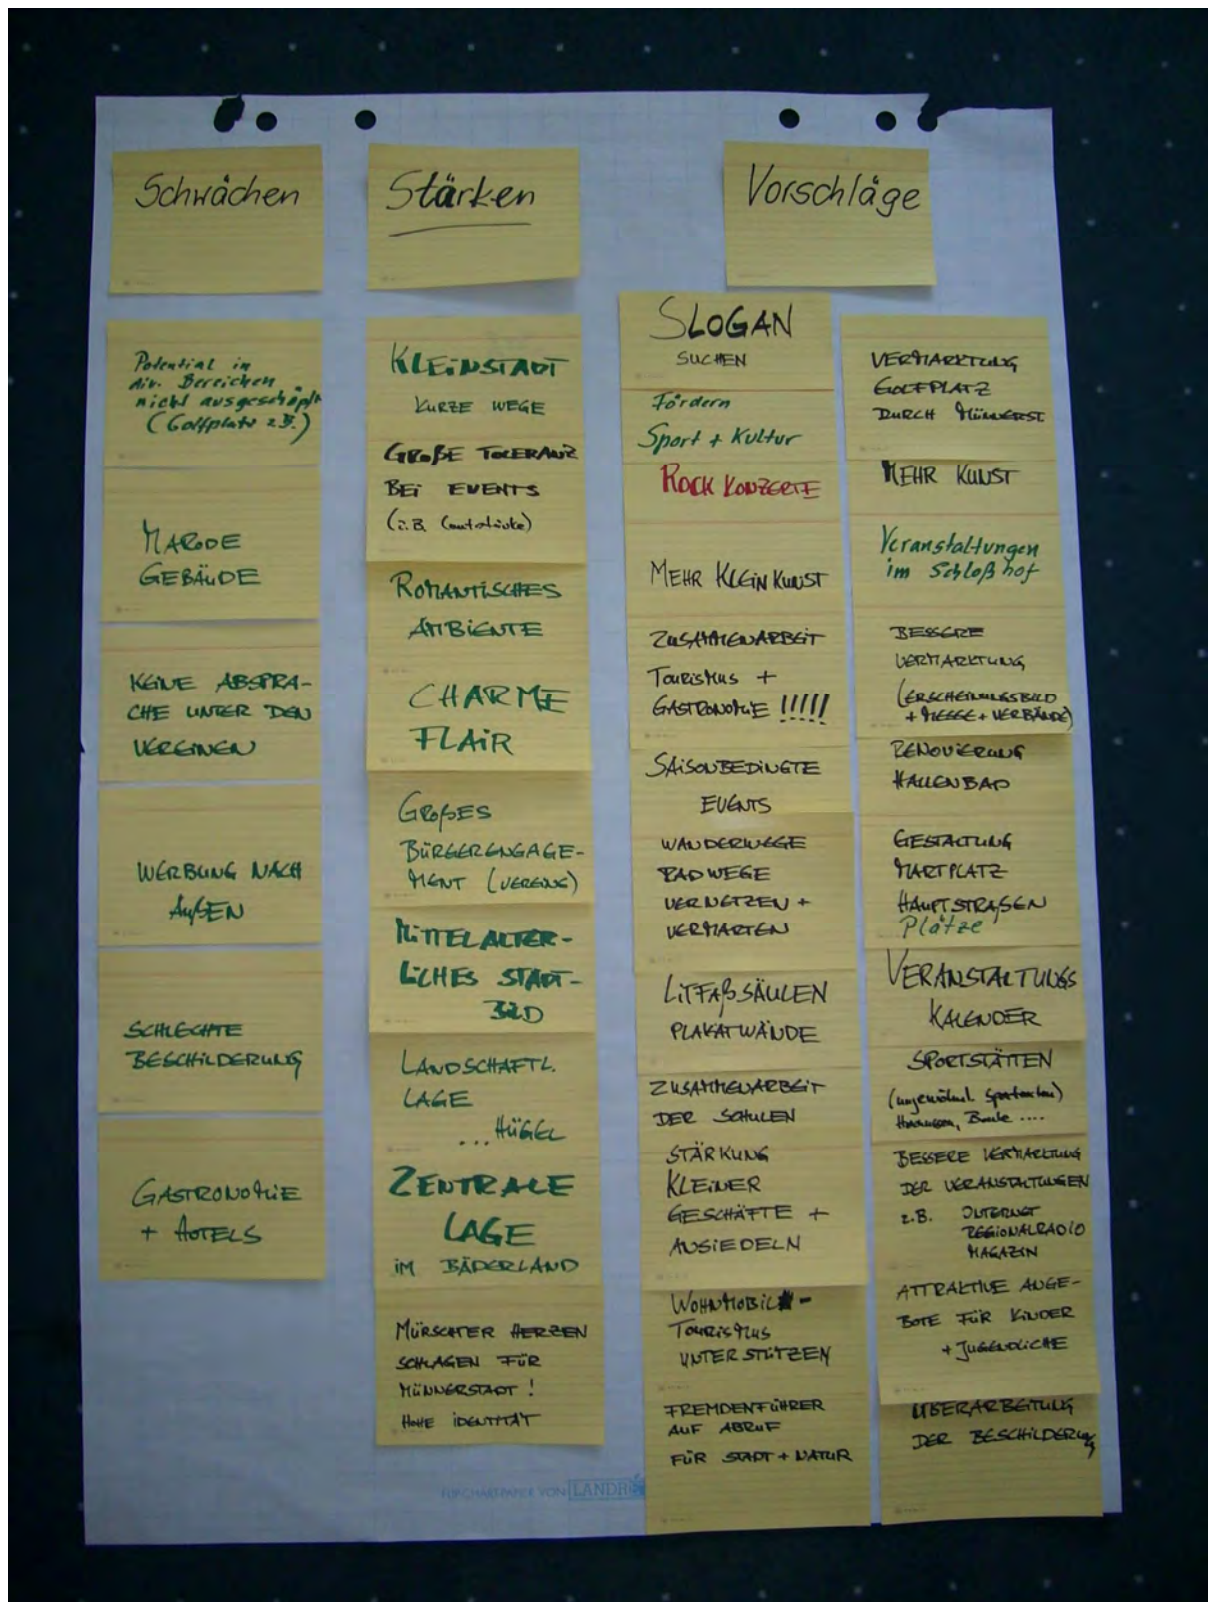 Schwächen
Potential in
div. Bereichen
nicht ausgeschöpft
(Golfplatz z.B.)
MARODE
GEBÄUDE
KEINE ABSPRA-
CHE UNTER DEN
VEREINEN
WERBUNG NACH
AUßEN
SCHLECHTE
BESCHILDERUNG
GASTRONOMIE
+ HOTELS
Stärken
KLEINSTADT
KURZE WEGE
GROßE TOLERANZ
BEI EVENTS
ROMANTISCHES
AMBIENTE
CHARME
FLAIR
GROßES
BÜRGERENGAGE-
MENT (VEREINE)
MITTELALTER-
LICHES STADT-
BILD
LANDSCHAFTL.
LAGE
...HÜGEL
ZENTRALE
LAGE
IM BÄDERLAND
MÜRSCHTER HERZEN
SCHLAGEN FÜR
MÜNNERSTADT!
HOHE IDENTITÄT
Vorschläge
SLOGAN
SUCHEN
Fördern
Sport + Kultur
ROCK KONZERTE
MEHR KLEINKUNST
ZUSAMMENARBEIT
TOURISMUS +
GASTRONOMIE !!!!!
SAISONBEDINGTE
EVENTS
WANDERWEGE
RADWEGE
VERNETZEN +
VERMARTEN
LITFAßSÄULEN
PLAKATWÄNDE
ZUSAMMENARBEIT
DER SCHULEN
STÄRKUNG
KLEINER
GESCHÄFTE +
ANSIEDELN
WOHNMOBIL-
TOURISMUS
UNTERSTÜTZEN
FREMDENFÜHRER
AUF ABRUF
FÜR STADT + NATUR
VERMARKTUNG
GOLFPLATZ
DURCH MÜNNERST
MEHR KUNST
Veranstaltungen
im Schloßhof
BESSERE
VERMARKTUNG
(ERSCHEINUNGSBILD
+ MESSE + VERBÄNDE)
RENOVIERUNG
HALLENBAD
GESTALTUNG
MARTPLATZ
HAUPTSTRAßEN
Plätze
VERANSTALTUNGS
KALENDER
SPORTSTÄTTEN
(ungewöhnl. Sportarten)
BESSERE VERMARKTUNG
DER VERANSTALTUNGEN
z.B. INTERNET
REGIONALRADIO
MAGAZIN
ATTRAKTIVE ANGE-
BOTE FÜR KINDER
+ JUGENDLICHE
ÜBERARBEITUNG
DER BESCHILDERUNG
FLIPCHARTPAPIER VON LANDR